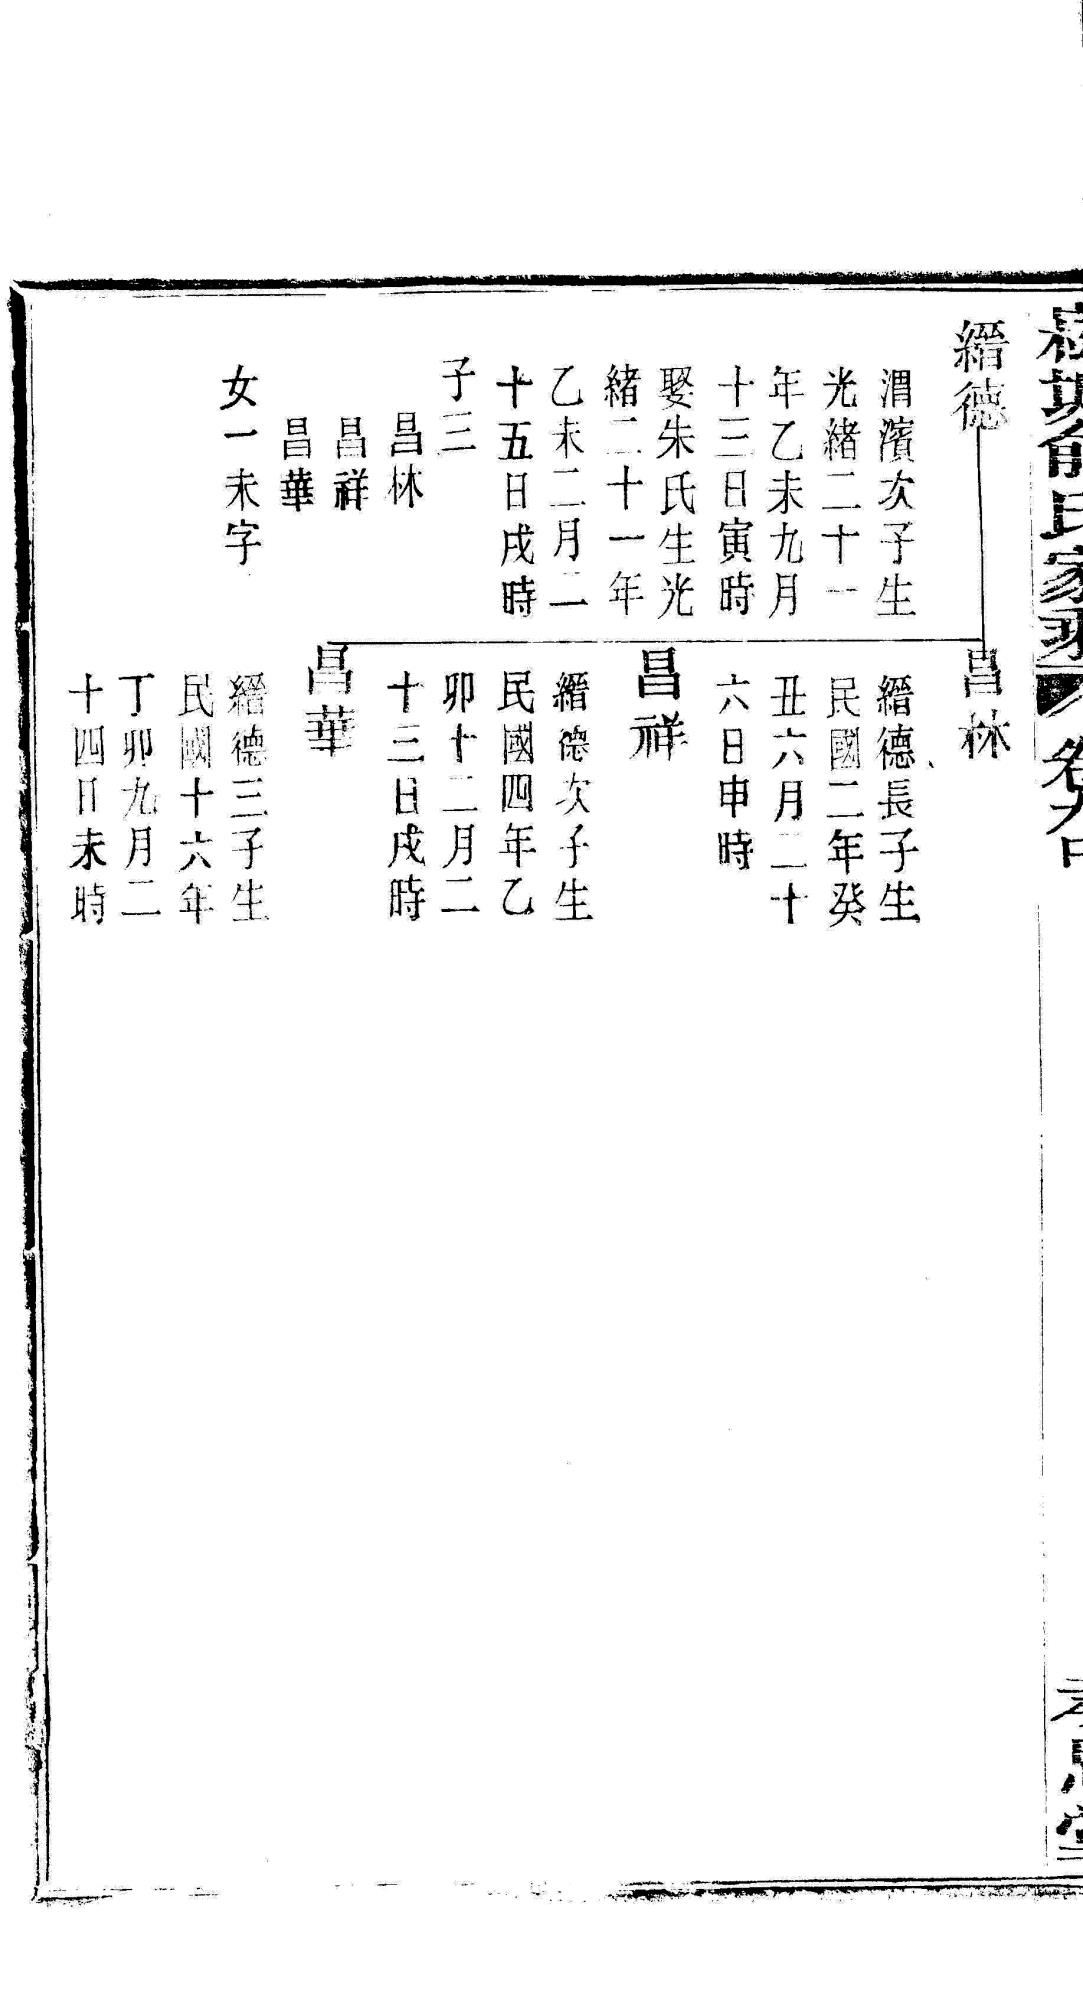 縉德
渭濱次子生
光緒二十一
年乙未九月
十三日寅時
娶朱氏生光
緒二十一年
乙未二月二
十五日戌時
子三
昌林
昌祥
昌華
女一未字
昌林
縉德長子生
民國二年癸
丑六月二十
六日申時
昌祥
縉德次子生
民國四年乙
卯十二月二
十三日戌時
昌華
縉德三子生
民國十六年
丁卯九月二
十四日未時
氏家乘
卷九中
孝思堂